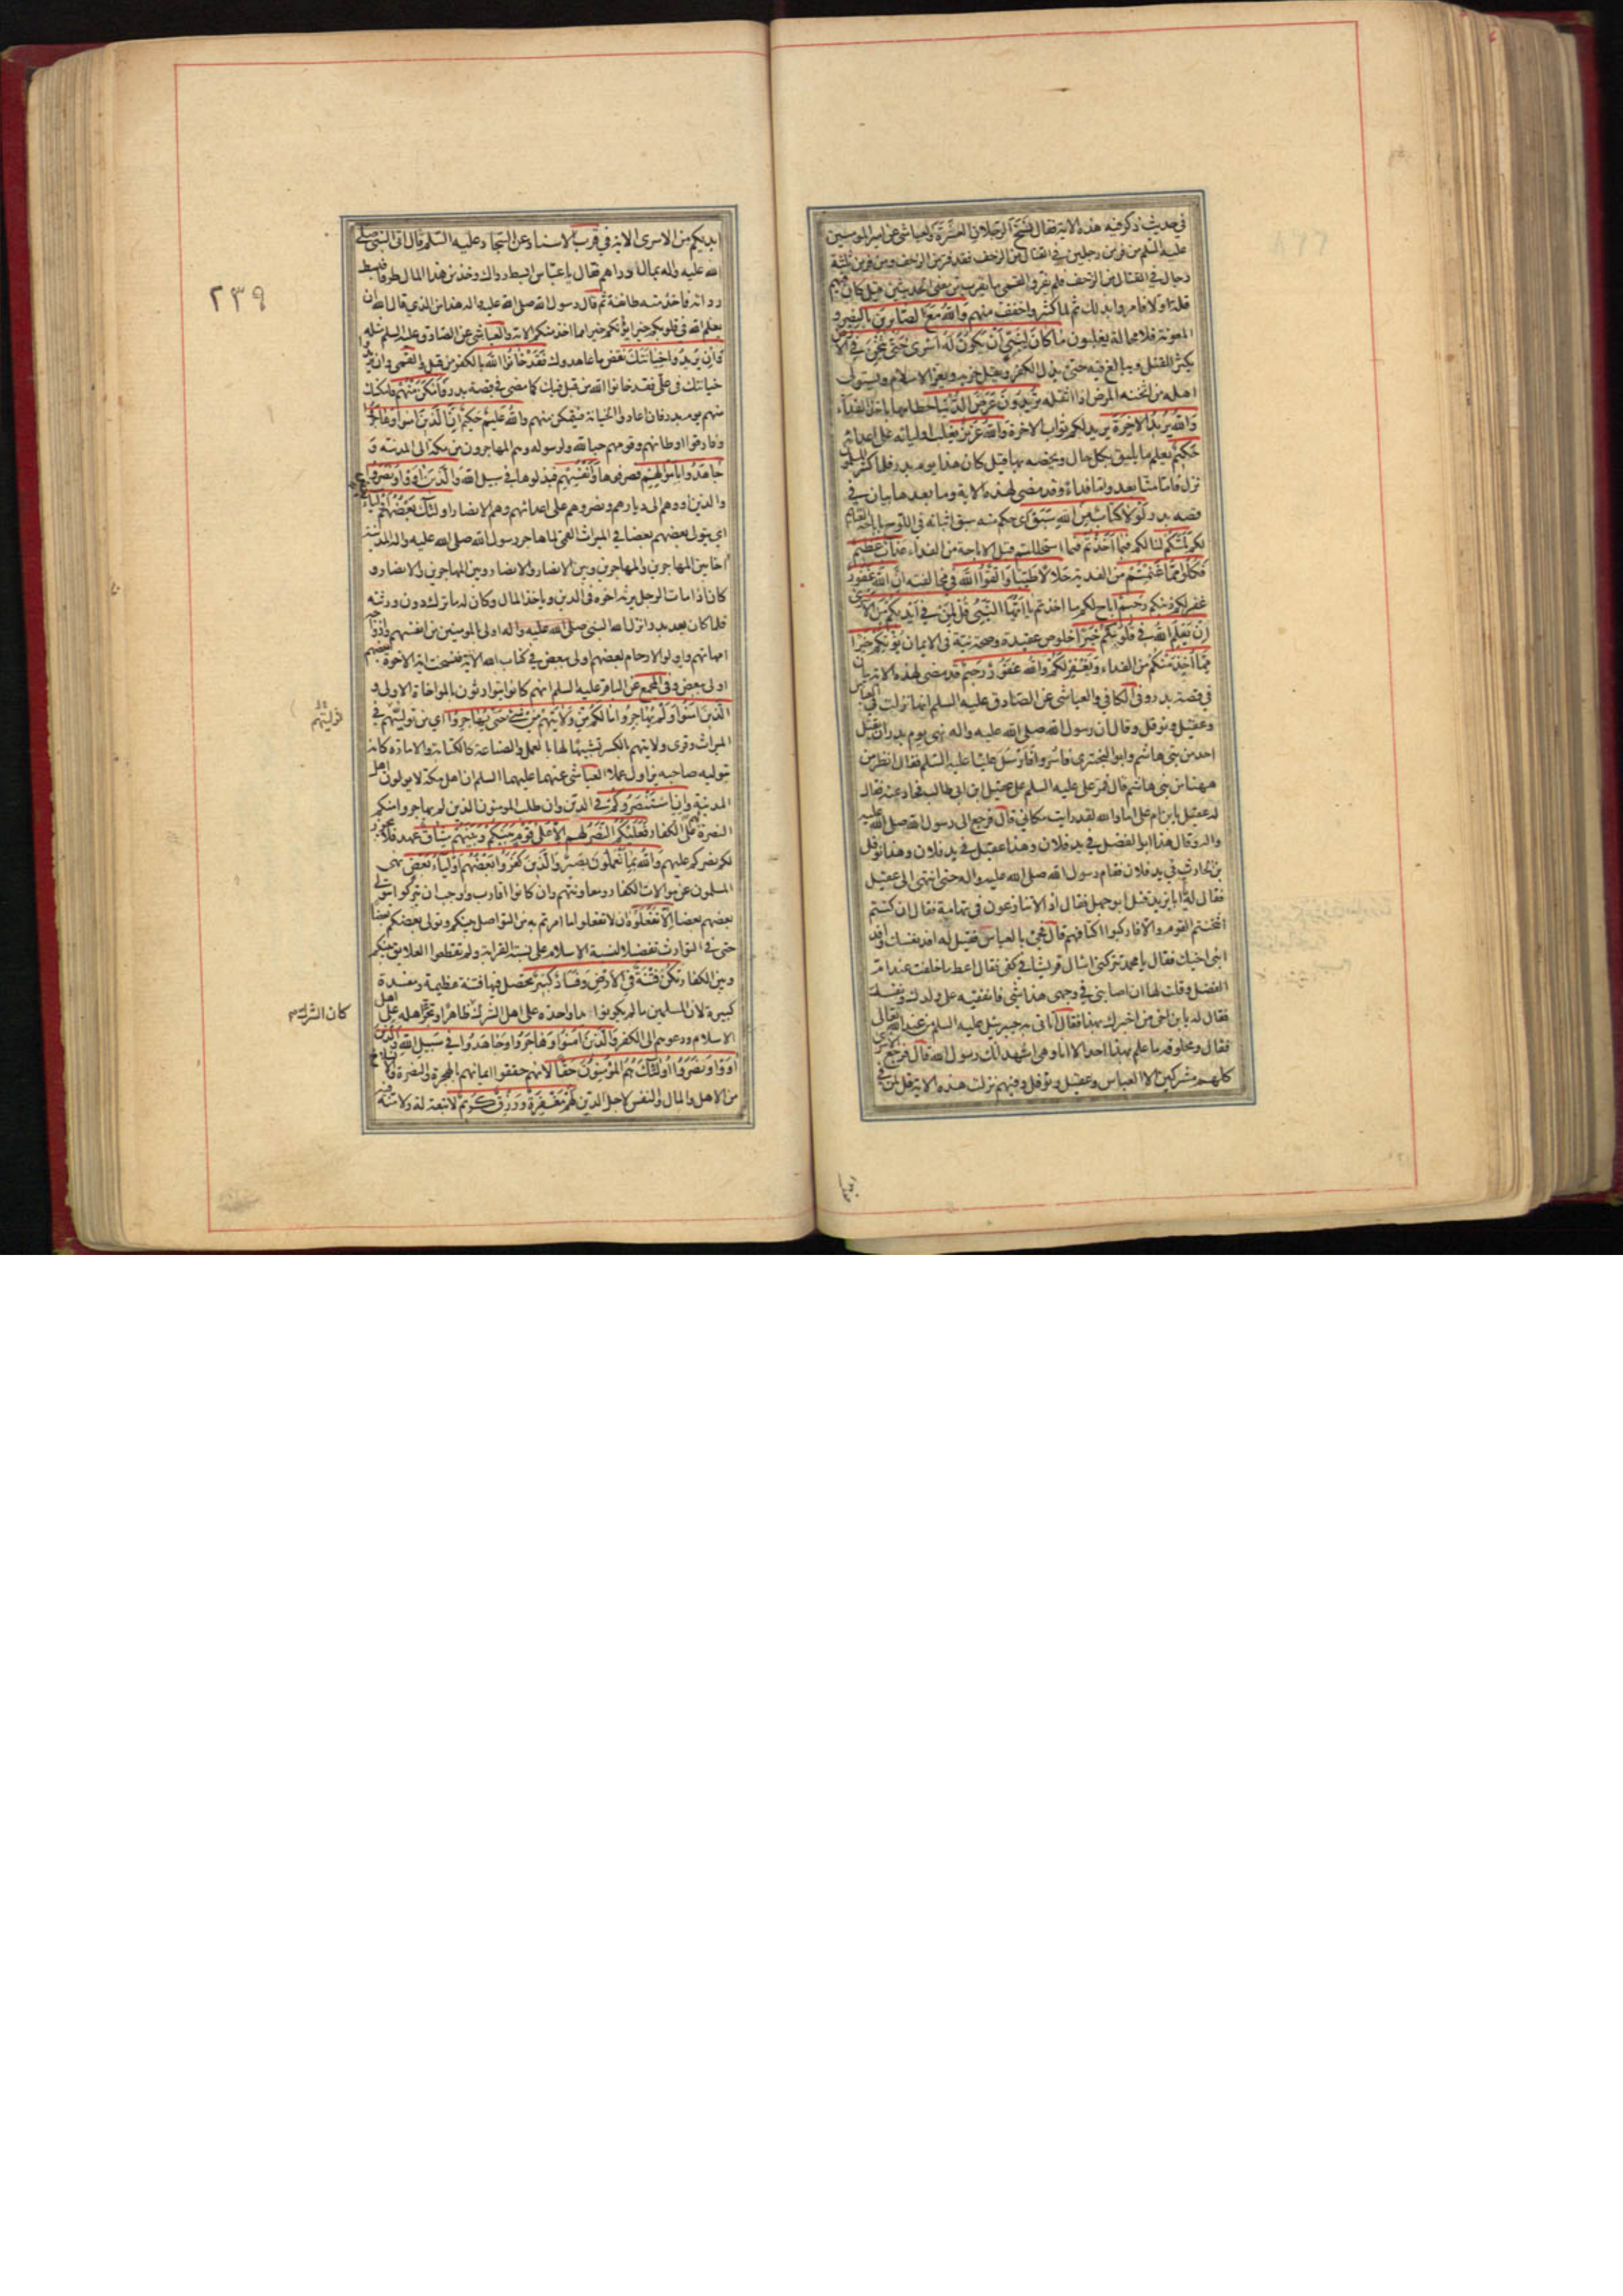 في حديث ذكر فيه هذه الاية فقال نسخ الرجلان العشرة والعياشي عن امير المومنين
عليه السلم من فر من رجلين في القتال من الزحف فقد فر من الزحف ومن فر من ثلثة
رجال في القتال من الزحف فلم يفر والقمي ما يقرب من معنى الحديثين قيل كان فيهم
قلة اولا فامروا بذلك ثم لما كثروا خفف منهم والله مع الصابرين بالنصر و
المعونة فلا محالة يغلبون ما كان لنبي ان يكون له اسرى حتى يثخن في الارض
يكثر القتل ويبالغ فيه حتى يذل الكفر ويقل حزبه ويعز الاسلام ويستولى
اهله من اثخنه المرض اذا اثقله تريدون عرض الدنيا حطامها باخذ الفداء
والله يريد الاخرة يريد لكم ثواب الاخرة والله عزيز يغلب اولياءه على اعدائه
حكيم يعلم ما يليق بكل حال ويخصه بها قيل كان هذا يوم بدر فلما كثر المسلمون
نزل فاما منا بعد واما فداء وقد مضى لهذه الاية وما بعدها بيان في
قصه بدر لولا كتاب من الله سبق اى حكم منه سبق اثباته في اللوح باباحة الغنائم
لكم لمسكم لنالكم فيما اخذتم فيما استحللتم قبل الاباحة من الفداء عذاب عظيم
فكلوا مما غنمتم من الفدية حلالا طيبا واتقوا الله في مخالفته ان الله غفور
غفر لكم ذنبكم رحيم اباح لكم ما اخذتم يا ايها النبي قل لمن في ايديكم من الاسرى
ان يعلم الله في قلوبكم خيرا خلوص عقيدة وصحة نية في الايمان يؤتكم خيرا
مما اخذ منكم من الفداء ويغفر لكم والله غفور رحيم قد مضى لهذه الاية بيان
في قصة بدر وفي الكافي والعياشي عن الصادق عليه السلم انها نزلت في العباس
وعقيل ونوفل وقال ان رسول الله صلى الله عليه واله نهى يوم بدر ان يقتل
احد من بني هاشم وابو البختري فاسروا فارسل عليا عليه السلم فقال انظر من
ههنا من بني هاشم قال فمر على عليه السلم على عقيل ابن ابي طالب فحاد عنه فقال
له عقيل يا بن ام على اما والله لقد رايت مكاني قال فرجع الى رسول الله صلى الله عليه
واله وقال هذا ابو الفضل في يد فلان وهذا عقيل في يد فلان وهذا نوفل
بن الحارث في يد فلان فقام رسول الله صلى الله عليه واله حتى انتهى الى عقيل
فقال له يا ابا يزيد قتل ابو جهل فقال اذا لا تنازعون في تهامة فقال ان كنتم
اثخنتم القوم والا فاركبوا اكتافهم قال فجئ بالعباس فقيل له افد نفسك وافد
ابني اخيك فقال يا محمد تتركني اسال قريشا في كفي فقال اعط ما خلفت عند ام
الفضل وقلت لها ان اصابني في وجهي هذا شئ فانفقيه على ولدك ونفسك
فقال له يا بن اخي من اخبرك بهذا فقال اتاني به جبرئيل عليه السلم من عند الله تعالى
فقال ومحلوفه ما علم بهذا احد الا انا وهي اشهد انك رسول الله قال فرجع الاسرى
كلهم مشركين الا العباس وعقيل ونوفل وفيهم نزلت هذه الاية قل لمن في
ايديكم
٢٣٩
ايديكم من الاسرى الاية في قرب الاسناد عن السجاد عليه السلم قال اتى النبي صلى
الله عليه واله بمال دراهم فقال يا عباس ابسط رداك وخذ من هذا المال طرفا فبسط
رداءه فاخذ منه طائفة ثم قال رسول الله صلى الله عليه واله هذا من الذي قال الله ان
يعلم الله في قلوبكم خيرا يؤتكم خيرا مما اخذ منكم الاية والعياشي عن الصادق عليه السلم مثله
وان يريدوا خيانتك نقض ما عاهدوك فقد خانوا الله بالكفر من قبل والقمي وان يريدوا
خيانتك في علي فقد خانوا الله من قبل فيك كما مضى في قصة بدر فامكن منهم فامكنك
منهم يوم بدر فان اعادوا الخيانة فيمكن منهم والله عليم حكيم ان الذين امنوا وهاجروا
وفارقوا اوطانهم وقومهم حبا لله ولرسوله وهم المهاجرون من مكة الى المدينة و
جاهدوا باموالهم فصرفوها وانفسهم فبذلوها في سبيل الله والذين اووا ونصروا
والذين اووهم الى ديارهم ونصروهم على اعدائهم وهم الانصار اولئك بعضهم اولياء
اى يتولى بعضهم بعضا في الميراث القمي لما هاجر رسول الله صلى الله عليه واله المدينة
اخا بين المهاجرين والمهاجرين وبين الانصار والانصار وبين المهاجرين والانصار و
كان اذا مات الرجل يرثه اخوه في الدين وياخذ المال وكان له ما ترك دون ورثته
فلما كان بعد بدر انزل الله النبي صلى الله عليه واله اولى بالمومنين من انفسهم وازواجه
امهاتهم واولو الارحام بعضهم اولى ببعض في كتاب الله الاية فنسخت اية الاخوة بعضهم
اولى ببعض وفي المجمع عن الباقر عليه السلم انهم كانوا يتوارثون بالمواخاة الاولى و
الذين امنوا ولم يهاجروا مالكم من ولايتهم من شئ حتى يهاجروا اى من توليتهم في
الميراث وقرئ ولايتهم بالكسر تشبيها لها بالعمل والصناعة كالكتابة والامارة كانه
بتوليه صاحبه يزاول عملا العياشي عنهما عليهما السلم ان اهل مكة لا يولون اهل
المدينة وان استنصروكم في الدين وان طلب المومنون الذين لم يهاجروا منكم
النصرة على الكفار فعليكم النصر لهم الا على قوم بينكم وبينهم ميثاق عهد فلا يجوز
لكم نصركم عليهم والله بما تعملون بصير والذين كفروا بعضهم اولياء بعض نهى
المسلمون عن موالات الكفار ومعاونتهم وان كانوا اقارب واوجب ان يتركوا يتولى
بعضهم بعضا الا تفعلوه ان لا تفعلوا ما امرتم به من التواصل بينكم وتولى بعضكم بعضا
حتى في التوارث تفضيلا لنسبة الاسلام على نسبة القرابة ولم تقطعوا العلايق بينكم
وبين الكفار تكن فتنة في الارض وفساد كبير تحصل فيها فتنة عظيمة ومفسدة
كبيرة لان المسلمين ما لم يكونوا يدا واحدة على اهل الشرك ظاهرا وتجرا اهله على اهل
الاسلام ودعوهم الى الكفر والذين امنوا وهاجروا وجاهدوا في سبيل الله والذين
اووا ونصروا اولئك هم المؤمنون حقا لانهم حققوا ايمانهم بالهجرة والنصرة والانسلاخ
من الاهل والمال والنفس لاجل الدين لهم مغفرة ورزق كريم لا تبعة له ولا منة فيه
توليتهم
كان الشرك